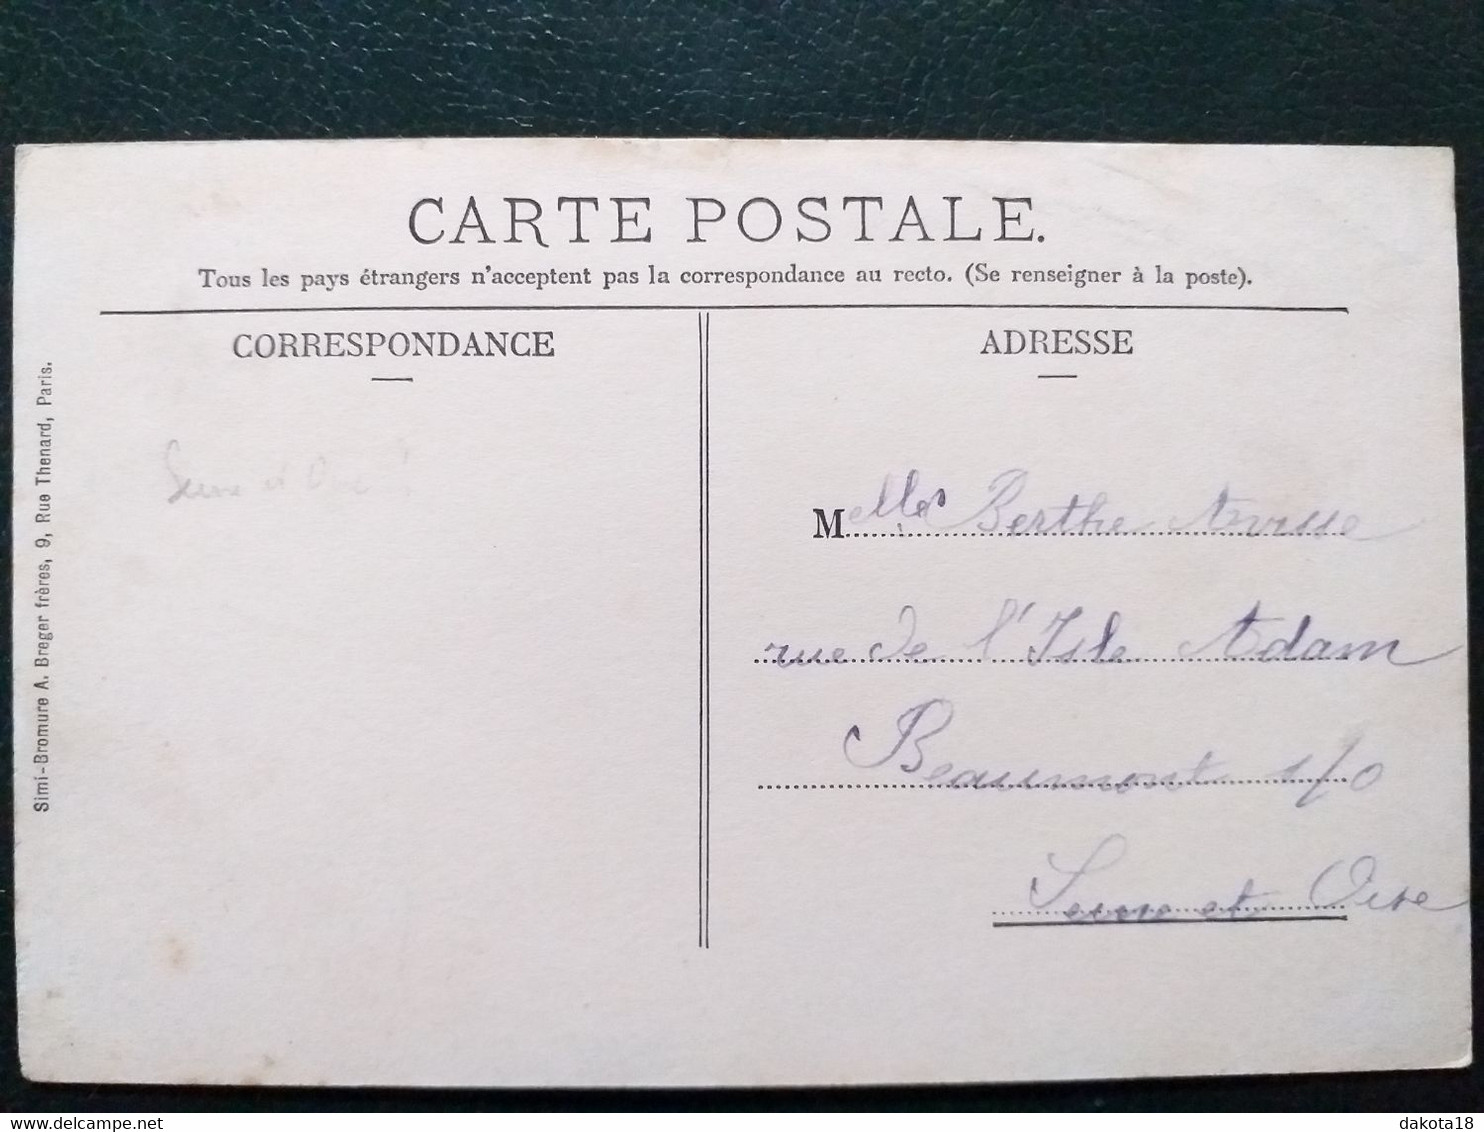 CARTE POSTALE.
Tous les pays étrangers n'acceptent pas la correspondance au recto. (Se renseigner à la poste).
CORRESPONDANCE
Seine et Oise
ADRESSE
Melle Berthe
rue de l'Isle Adam
Beaumont s/O
Seine et Oise
Simi-Bromure A. Breger frères, 9, Rue Thenard, Paris.
dakota18